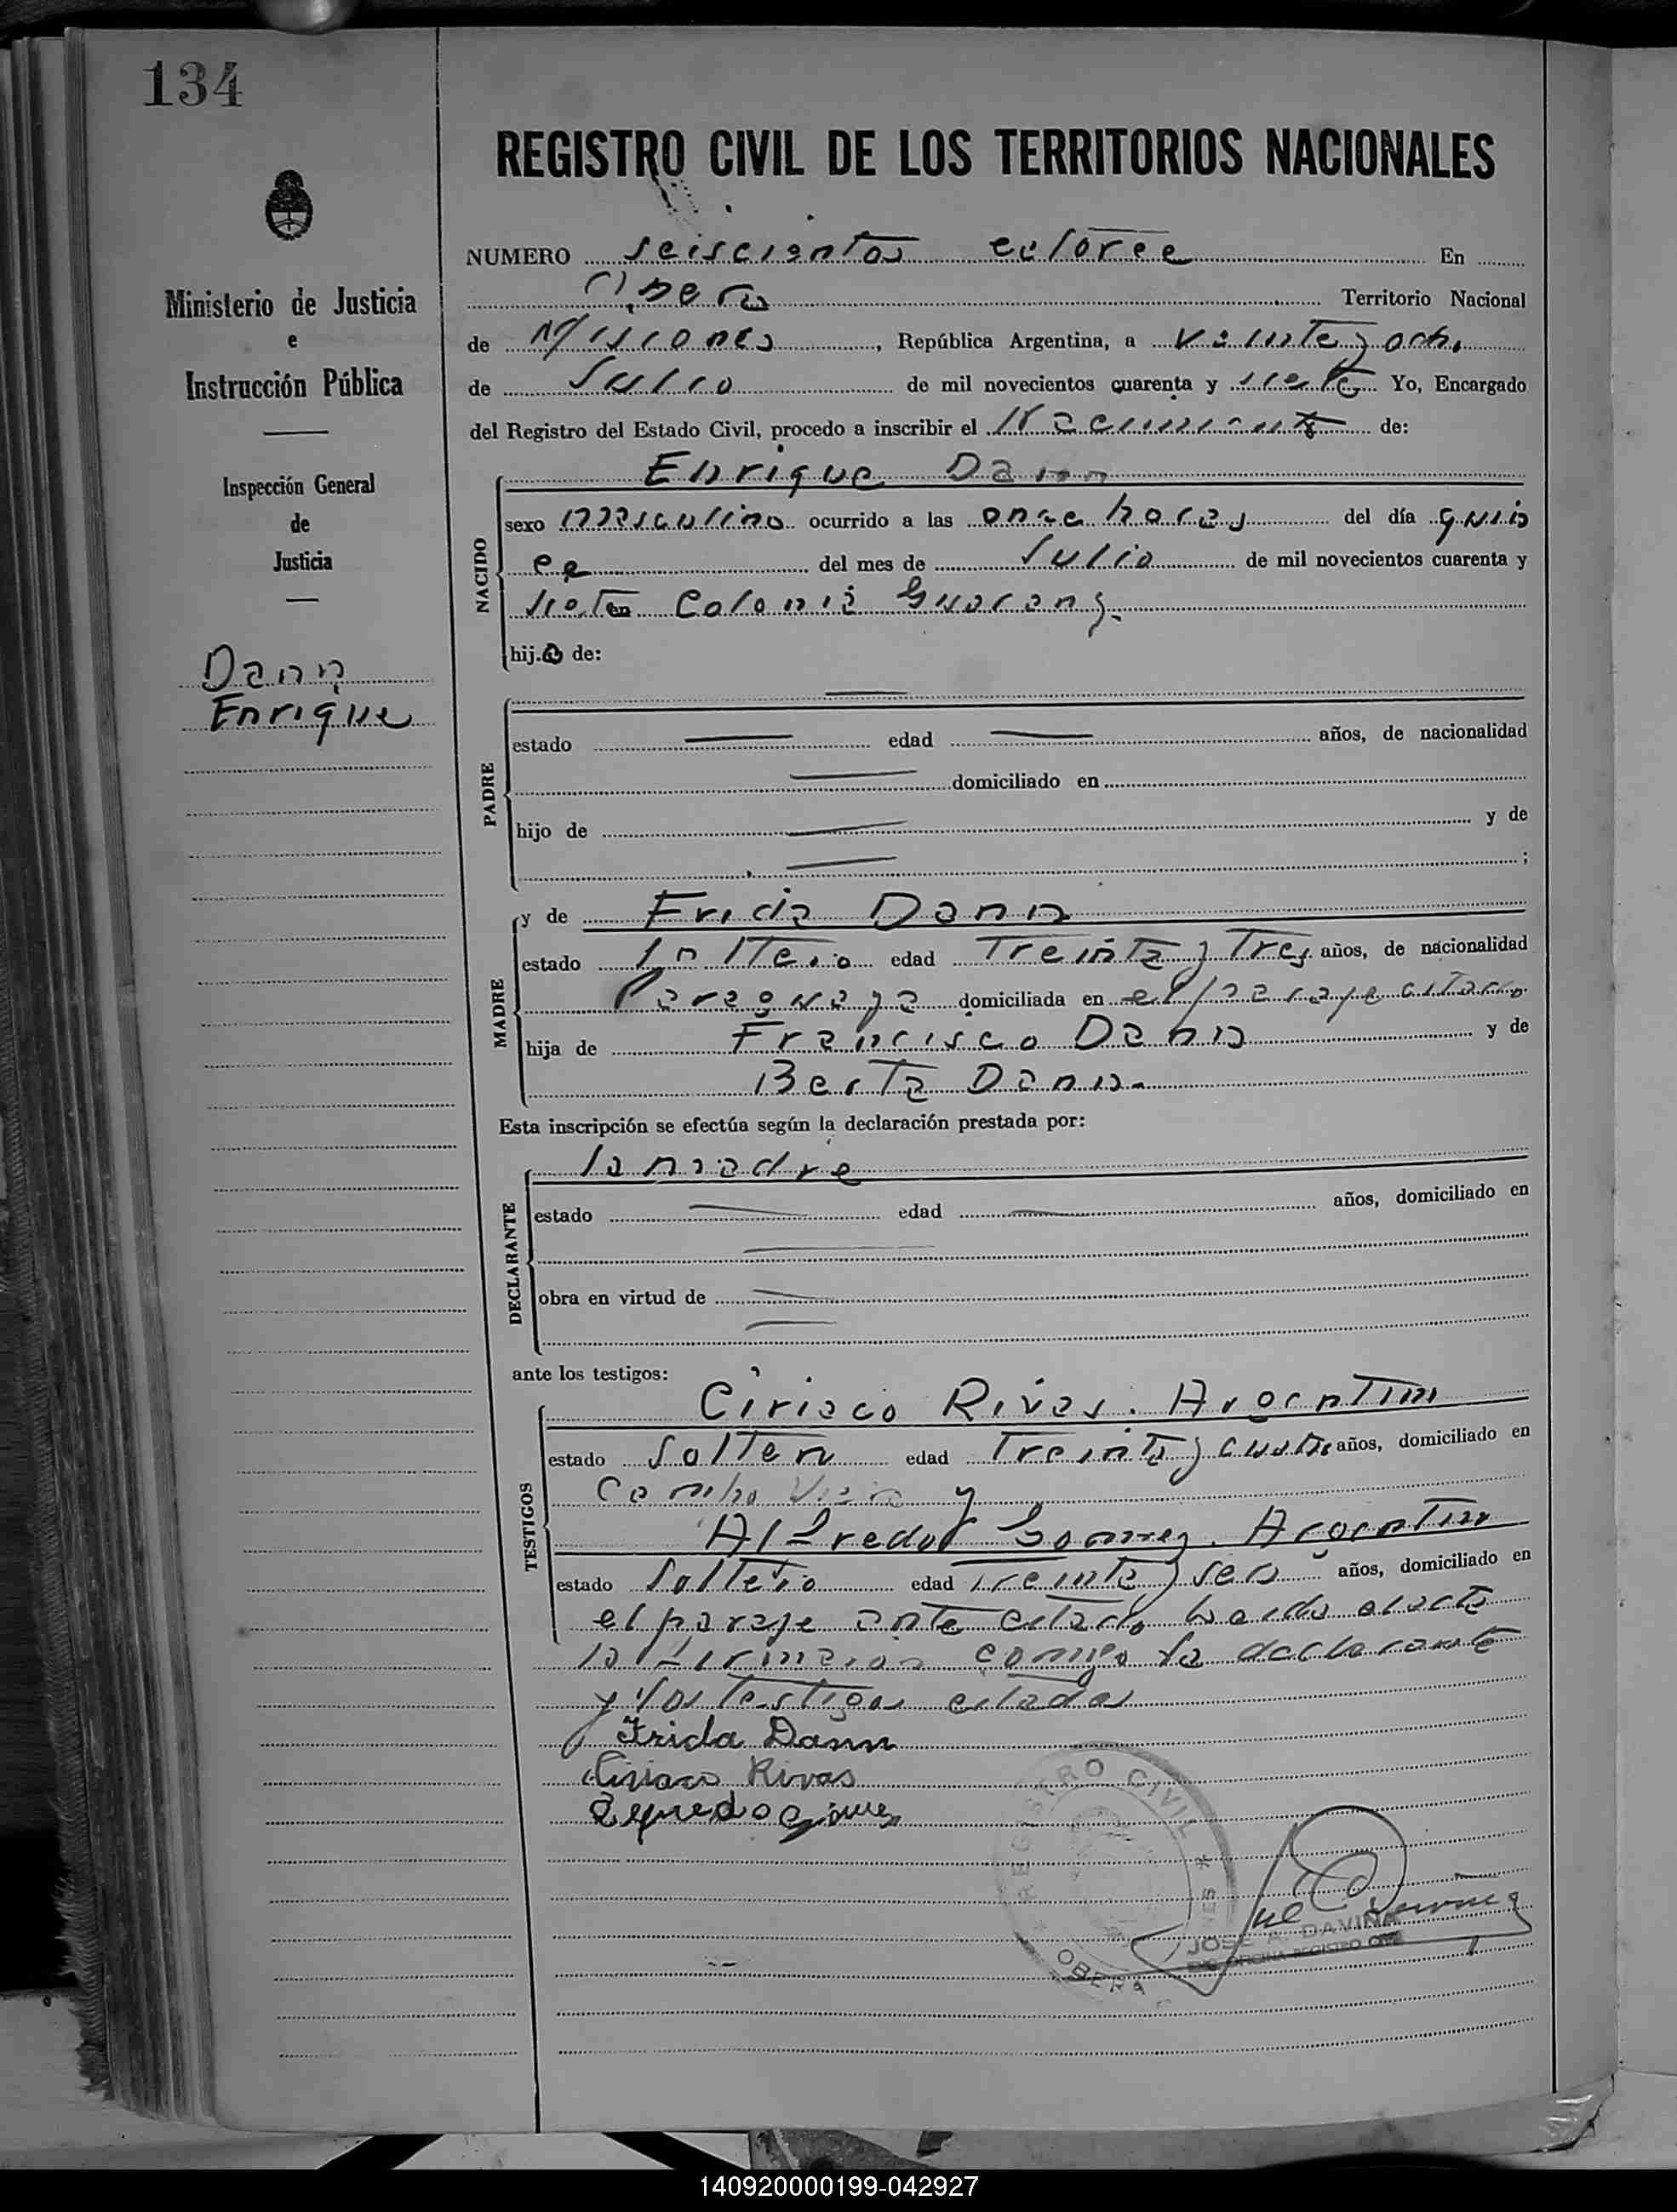 134
REGISTRO CIVIL DE LOS TERRITORIOS NACIONALES
Ministerio de Justicia
e
Instrucción Pública
Inspección General
de
Justicia
Dann
Enrique
NUMERO seiscientos catorce En
Obera Territorio Nacional
de Misiones, República Argentina, a veinte y ocho
de Julio de mil novecientos cuarenta y siete Yo, Encargado
del Registro del Estado Civil, procedo a inscribir el Nacimiento de:
NACIDO
Enrique Dann
sexo masculino ocurrido a las once horas del día quin
ce del mes de Julio de mil novecientos cuarenta y
siete en Colonia Guarany.
hijo de:
PADRE
estado edad años, de nacionalidad
domiciliado en
hijo de y de
;
MADRE
y de Frida Dann
estado soltera edad treinta y tres años, de nacionalidad
Paraguaya domiciliada en el paraje citado
hija de Francisco Dann y de
Berta Dann.
Esta inscripción se efectúa según la declaración prestada por:
DECLARANTE
la madre
estado edad años, domiciliado en
obra en virtud de
ante los testigos:
TESTIGOS
Ciriaco Rivas. Argentin
estado solter edad treinta y cuatro años, domiciliado en
y
Alfredo Gomez. Argentin
estado soltero edad treinta y seis años, domiciliado en
el paraje ante citado leida el acta
la firmaron conmigo la declarante
y los testigos citados
Frida Dann
Ciriaco Rivas
Alfredo Gomez
REGISTRO CIVIL
OBERA
JOSE A. DAVIÑA
ENC. OFICINA REGISTRO CIVIL
140920000199-042927